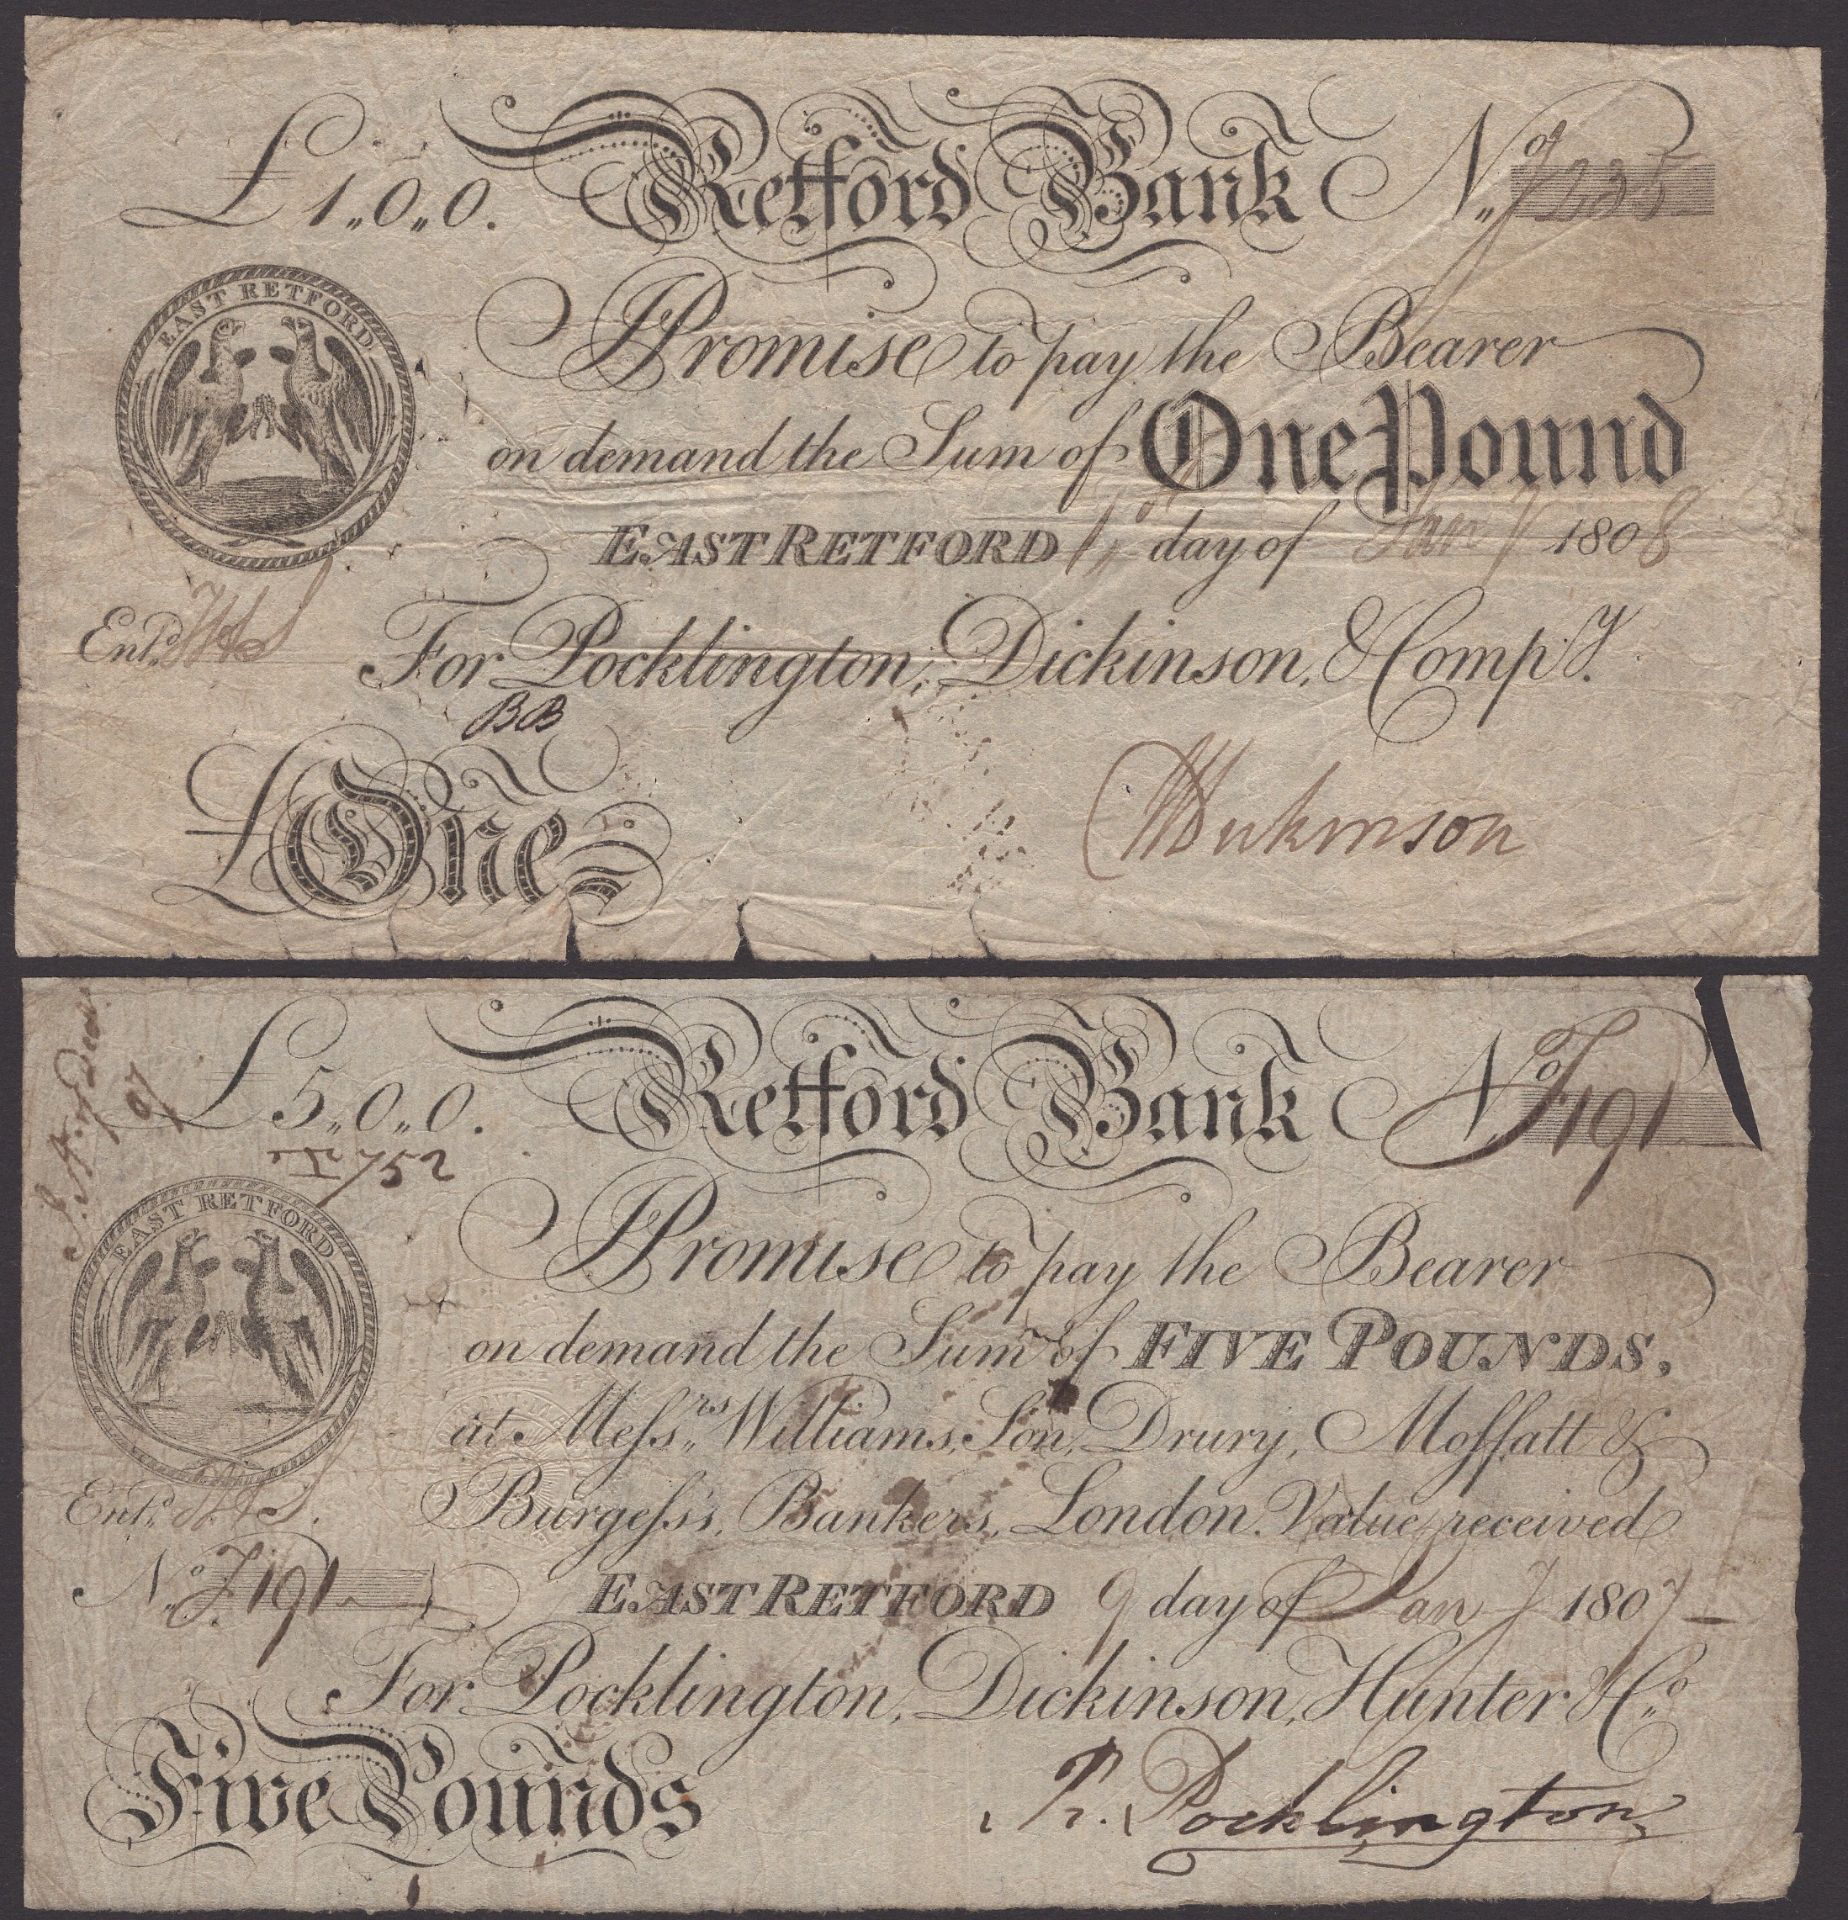 £1„0„0. Retford Bank No.
EAST RETFORD.
I Promise to pay the Bearer
on demand the Sum of One Pound
EAST RETFORD 1 day of Jany 1808
Entd.
For Pocklington, Dickinson, & Compy.
BB
£One
Dickinson
£5„0„0. Retford Bank No. F191
F752
EAST RETFORD
I Promise to pay the Bearer
on demand the Sum of FIVE POUNDS,
at Messrs. Williams, Son, Drury, Moffatt &
Burgess's, Bankers, London. Value received
Entd.
No. F191 EAST RETFORD 9 day of Jany 1807
For Pocklington, Dickinson, Hunter & Co.
Five Pounds
R. Pocklington